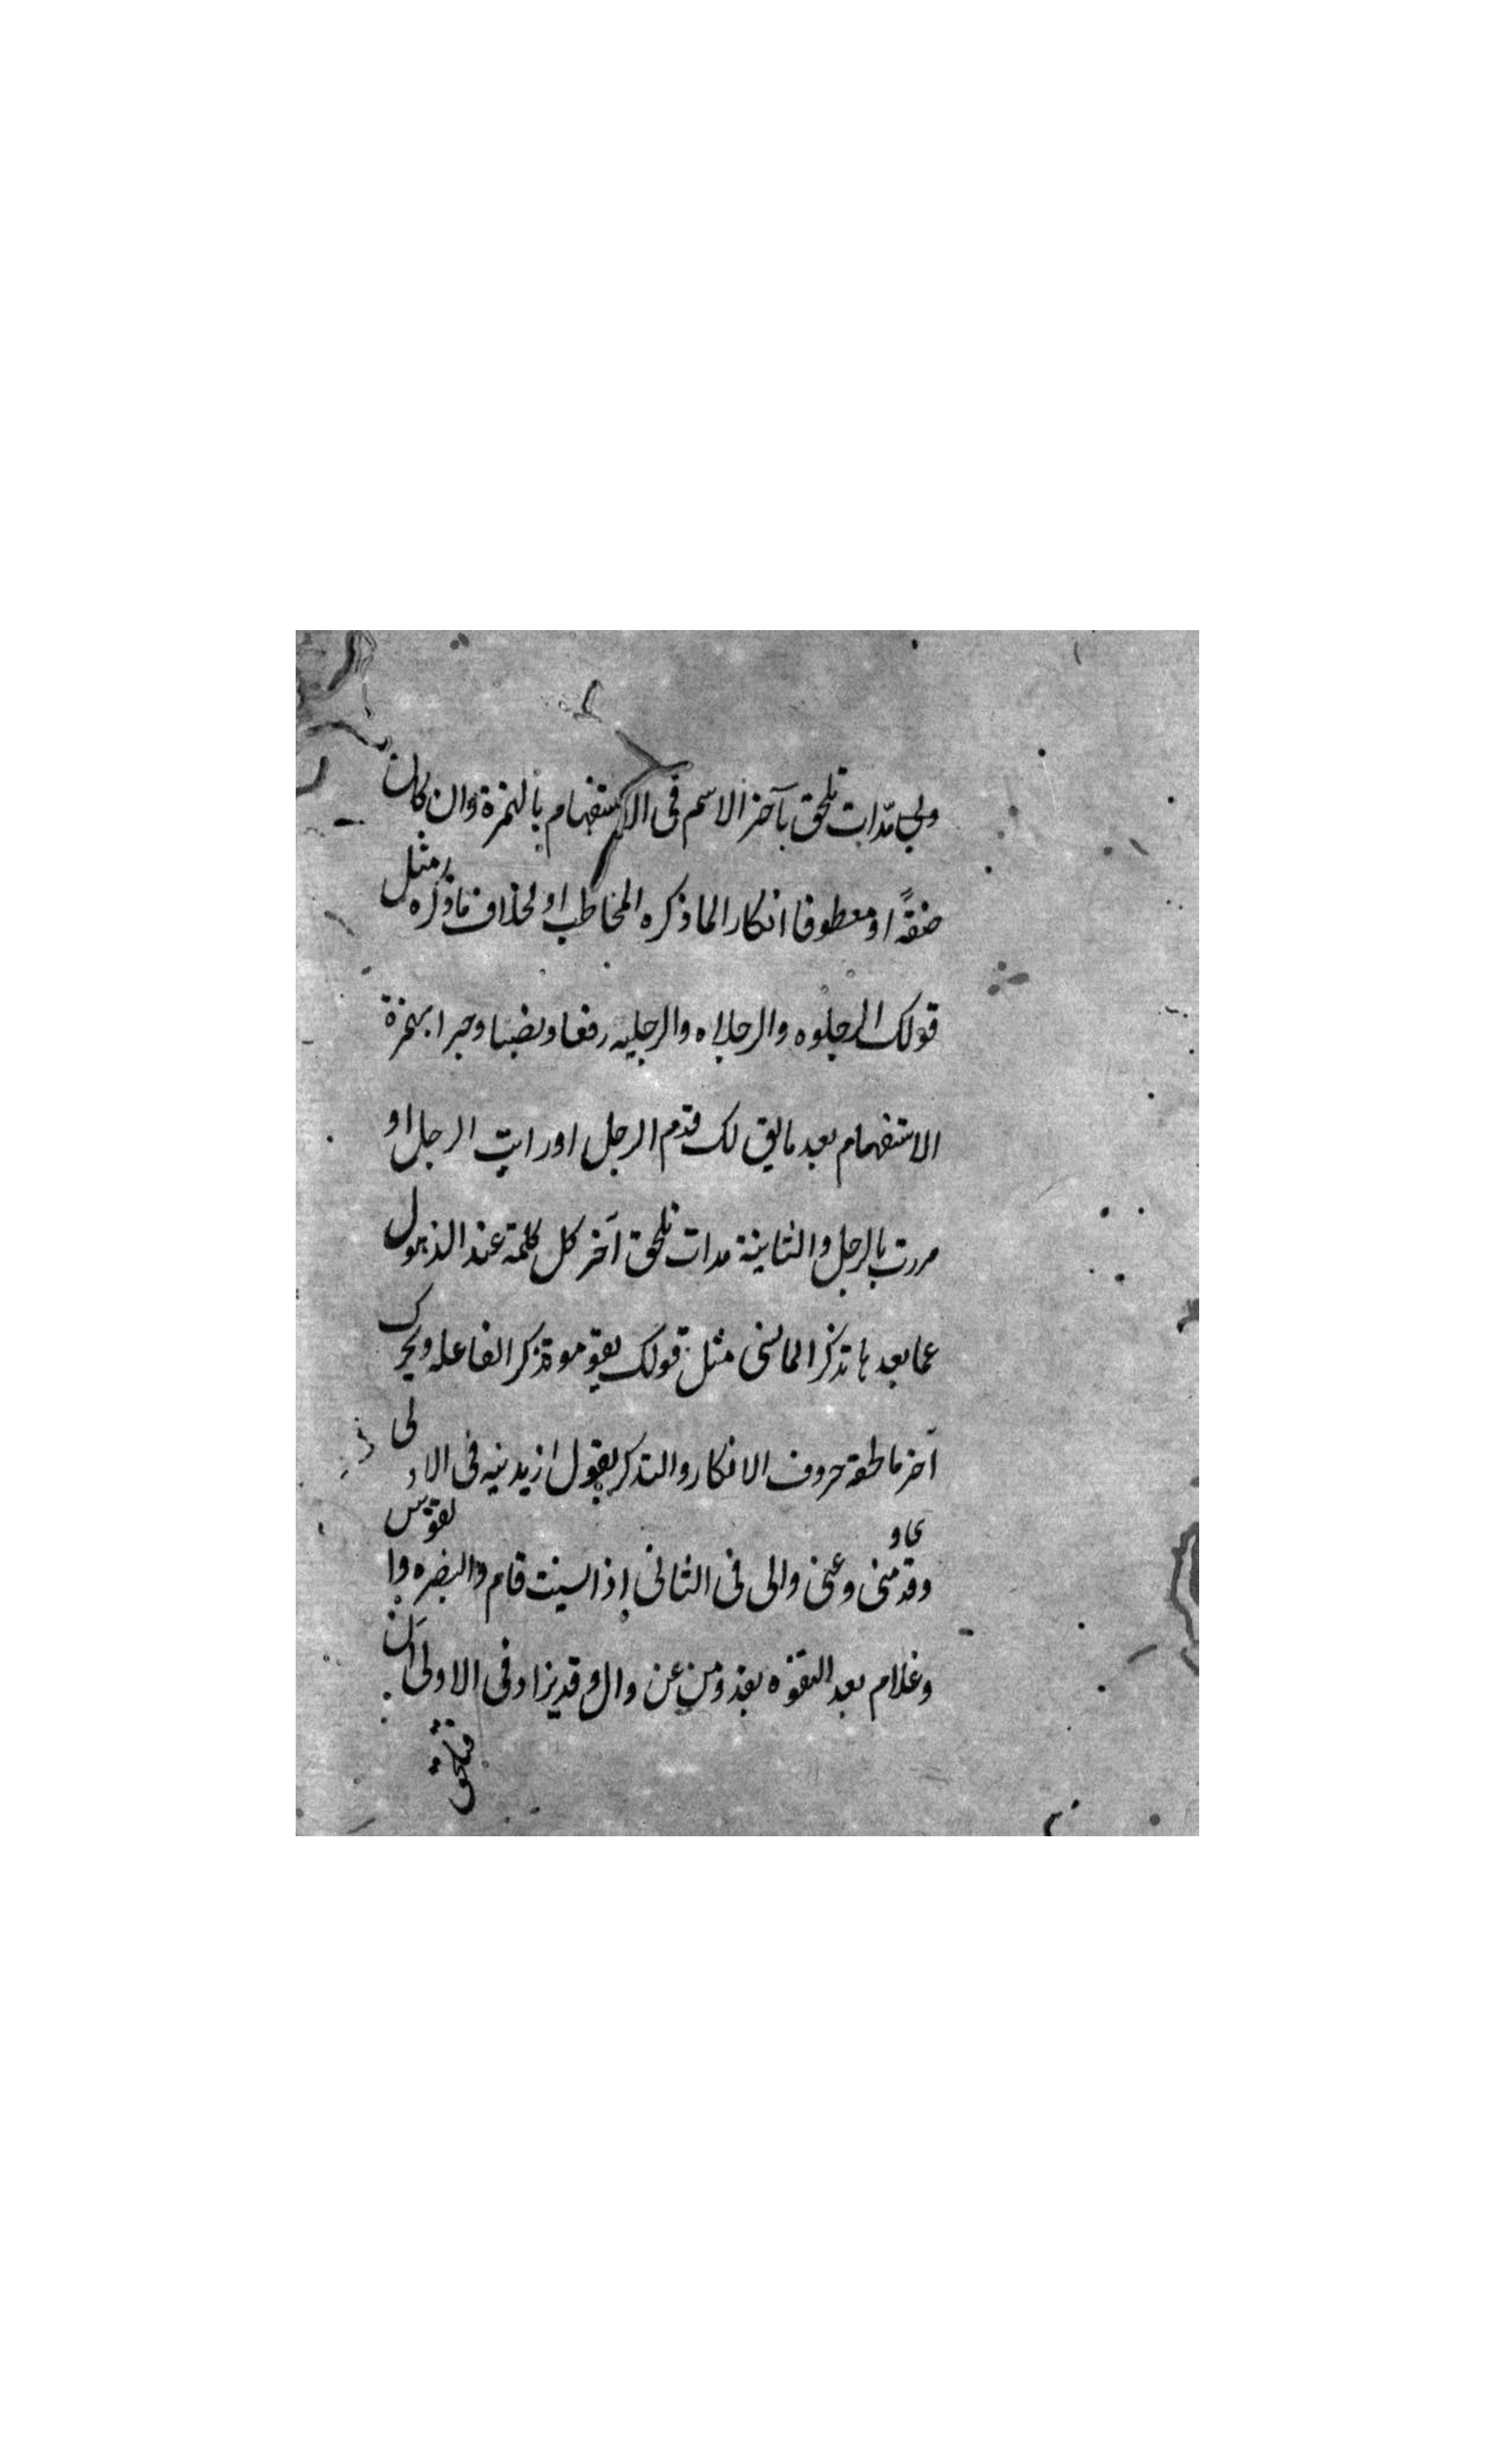 وہی مدّات تلحق بآخر الاسم فی الاستفہام بالہمزة وان کان
صفةً او معطوفا انکارا لما ذکره المخاطب او لخلاف ما ذکره مثل
قولک الرجلوه والرجلاه والرجلیه رفعا ونصبا وجرا بہمزة
الاستفہام بعد ما یق لک قدم الرجل او رایت الرجل او
مررت بالرجل والثانیة مدات تلحق آخر کل کلمة عند الذہول
عما بعدہا تذکرا لما نسی مثل قولک یقومو تذکر الفاعله ویحرک
آخر ما لحقه حروف الانکار والتذکر یقول ازیدنیه فی الاولی
وقدی و منی وعنی والی فی الثانی إذا نسیت قام والبصره والقوس
وغلام بعد التفوه بقد ومن عن وال وقد یزاد فی الاولی ان
فتلحق